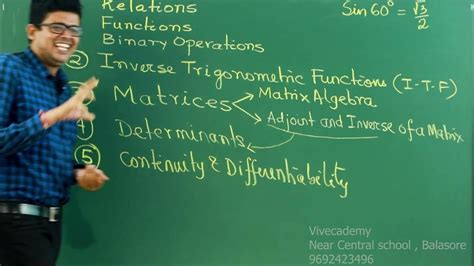 Relations
Functions
Binary Operations
Sin 60° = √3/2
② Inverse Trigonometric Functions (I-T.F)
③ Matrices
Matrix Algebra
Adjoint and Inverse of a Matrix
④ Determinants
⑤ Continuity & Differentiability
Vivecademy
Near Central school , Balasore
9692423496